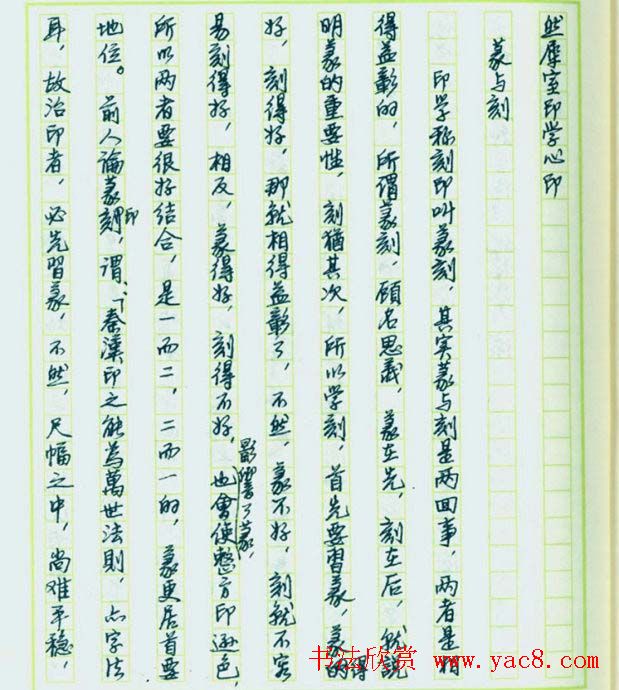 然犀室印学心印
篆与刻
印学称刻印叫篆刻，其实篆与刻是两回事，两者是相
得益彰的，所谓篆刻，顾名思義，篆在先，刻在后，就説
明篆的重要性，刻猶其次，所以学刻，首先要習篆，篆的得
好，刻得好，那就相得益彰了，不然，篆不好，刻就不容
易刻得好，相反，篆得好，刻得不好，影响了篆，也會使整方印遜色，
所以两者要很好结合，是一而二，二而一的，篆更居首要
地位。前人論篆刻印，謂：「秦漢印之能為萬世法則，点字法
耳，故治印者，必先習篆，不然，尺幅之中，尚难平稳，
书法欣赏 www.yac8.com